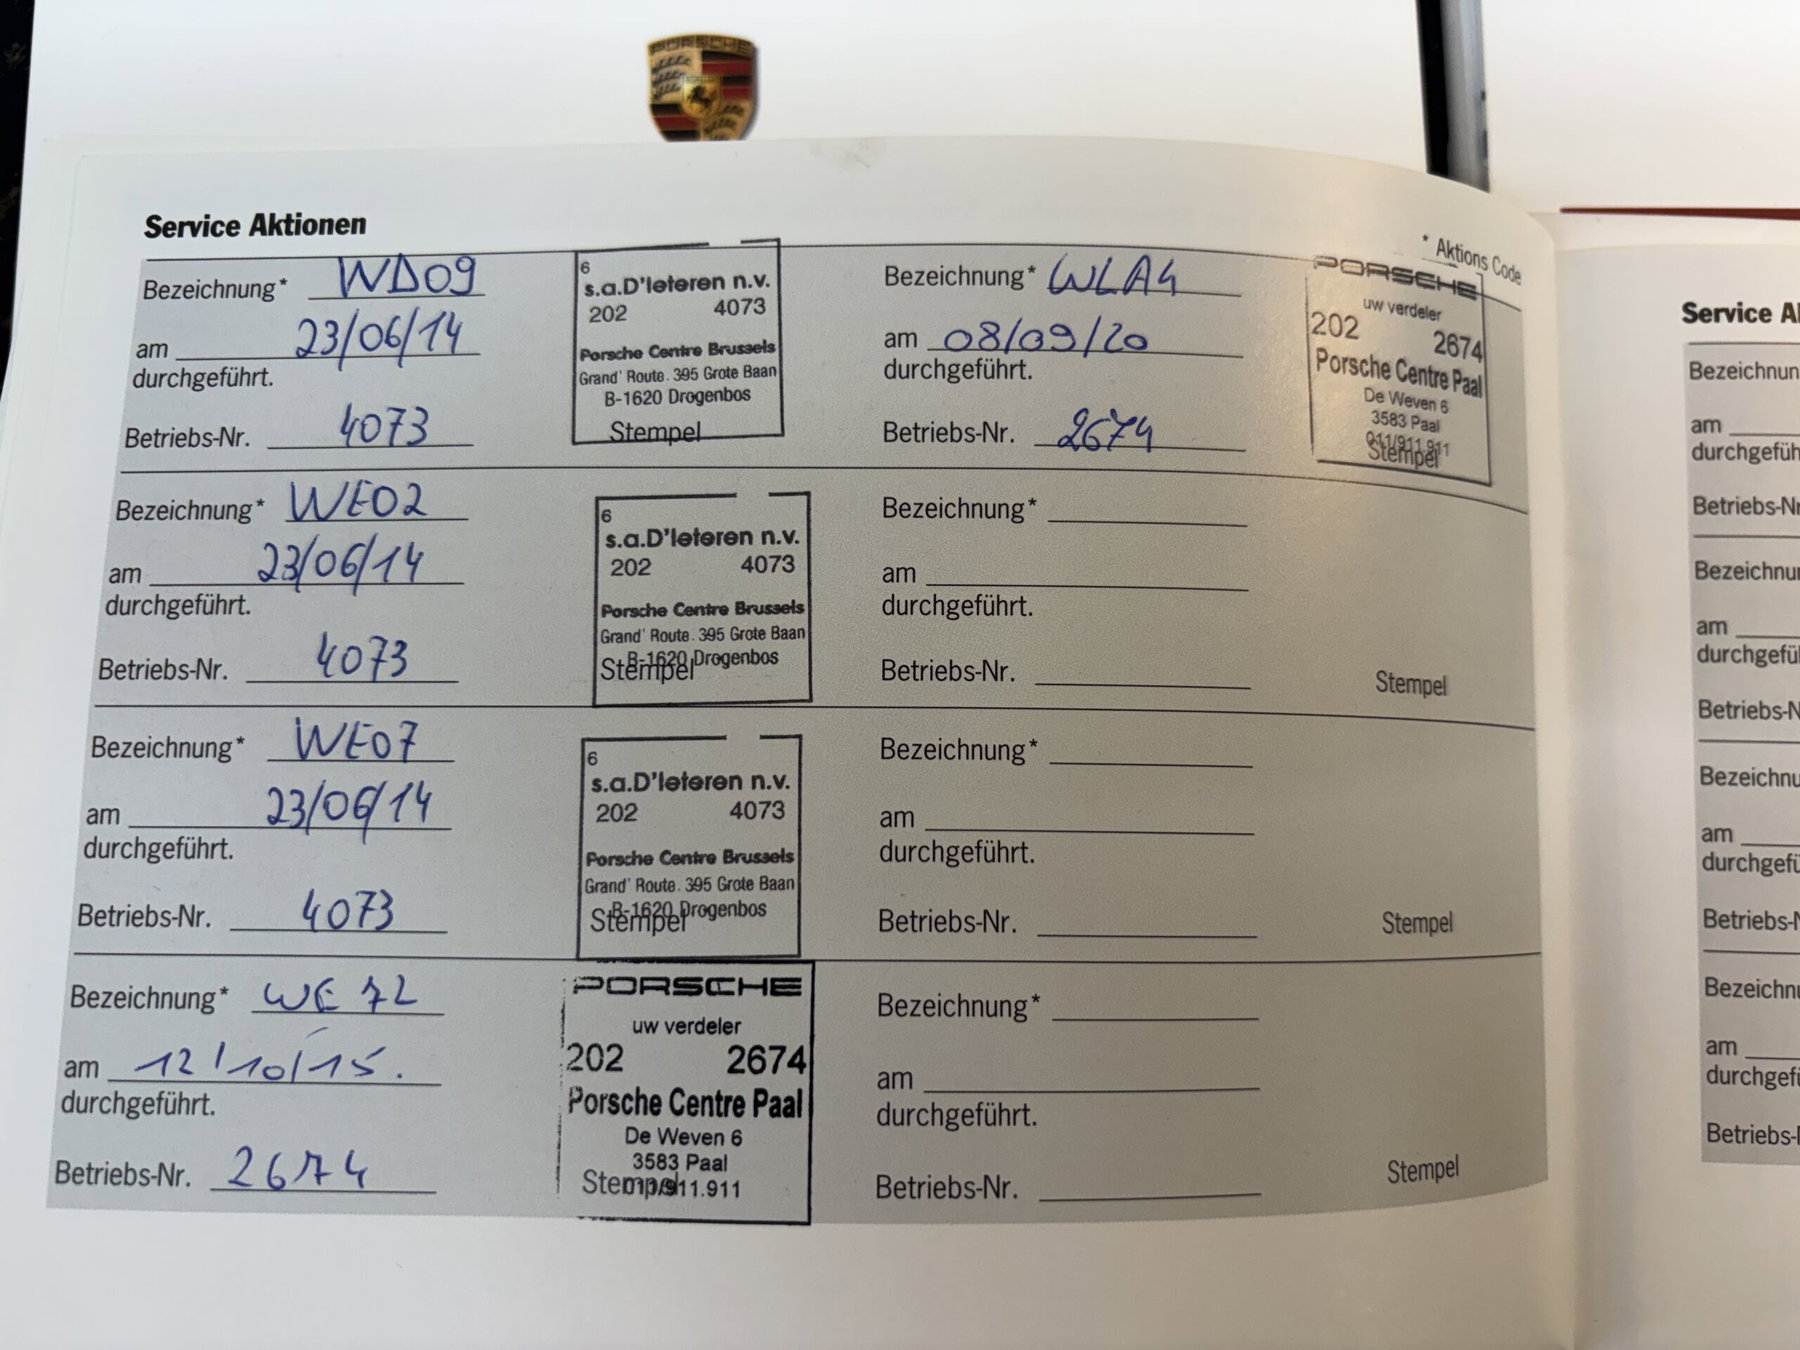 PORSCHE
Service Aktionen
* Aktions Code
Bezeichnung* WD09
am 23/06/14
durchgeführt.
Betriebs-Nr. 4073
6
s.a.D'Ieteren n.v.
202 4073
Porsche Centre Brussels
Grand' Route. 395 Grote Baan
B-1620 Drogenbos
Stempel
Bezeichnung* WLA4
am 08/09/20
durchgeführt.
Betriebs-Nr. 2674
PORSCHE
uw verdeler
202 2674
Porsche Centre Paal
De Weven 6
3583 Paal
011/911.911
Stempel
Bezeichnung* WE02
am 23/06/14
durchgeführt.
Betriebs-Nr. 4073
6
s.a.D'Ieteren n.v.
202 4073
Porsche Centre Brussels
Grand' Route. 395 Grote Baan
B-1620 Drogenbos
Stempel
Bezeichnung*
am
durchgeführt.
Betriebs-Nr.
Stempel
Bezeichnung* WE07
am 23/06/14
durchgeführt.
Betriebs-Nr. 4073
6
s.a.D'Ieteren n.v.
202 4073
Porsche Centre Brussels
Grand' Route. 395 Grote Baan
B-1620 Drogenbos
Stempel
Bezeichnung*
am
durchgeführt.
Betriebs-Nr.
Stempel
Bezeichnung* WE72
am 12/10/15.
durchgeführt.
Betriebs-Nr. 2674
PORSCHE
uw verdeler
202 2674
Porsche Centre Paal
De Weven 6
3583 Paal
011/911.911
Stempel
Bezeichnung*
am
durchgeführt.
Betriebs-Nr.
Stempel
Service A
Bezeichnun
am
durchgefüh
Betriebs-Nr
Bezeichnu
am
durchgefü
Betriebs-N
Bezeichnu
am
durchgefü
Betriebs-N
Bezeichn
am
durchgef
Betriebs-